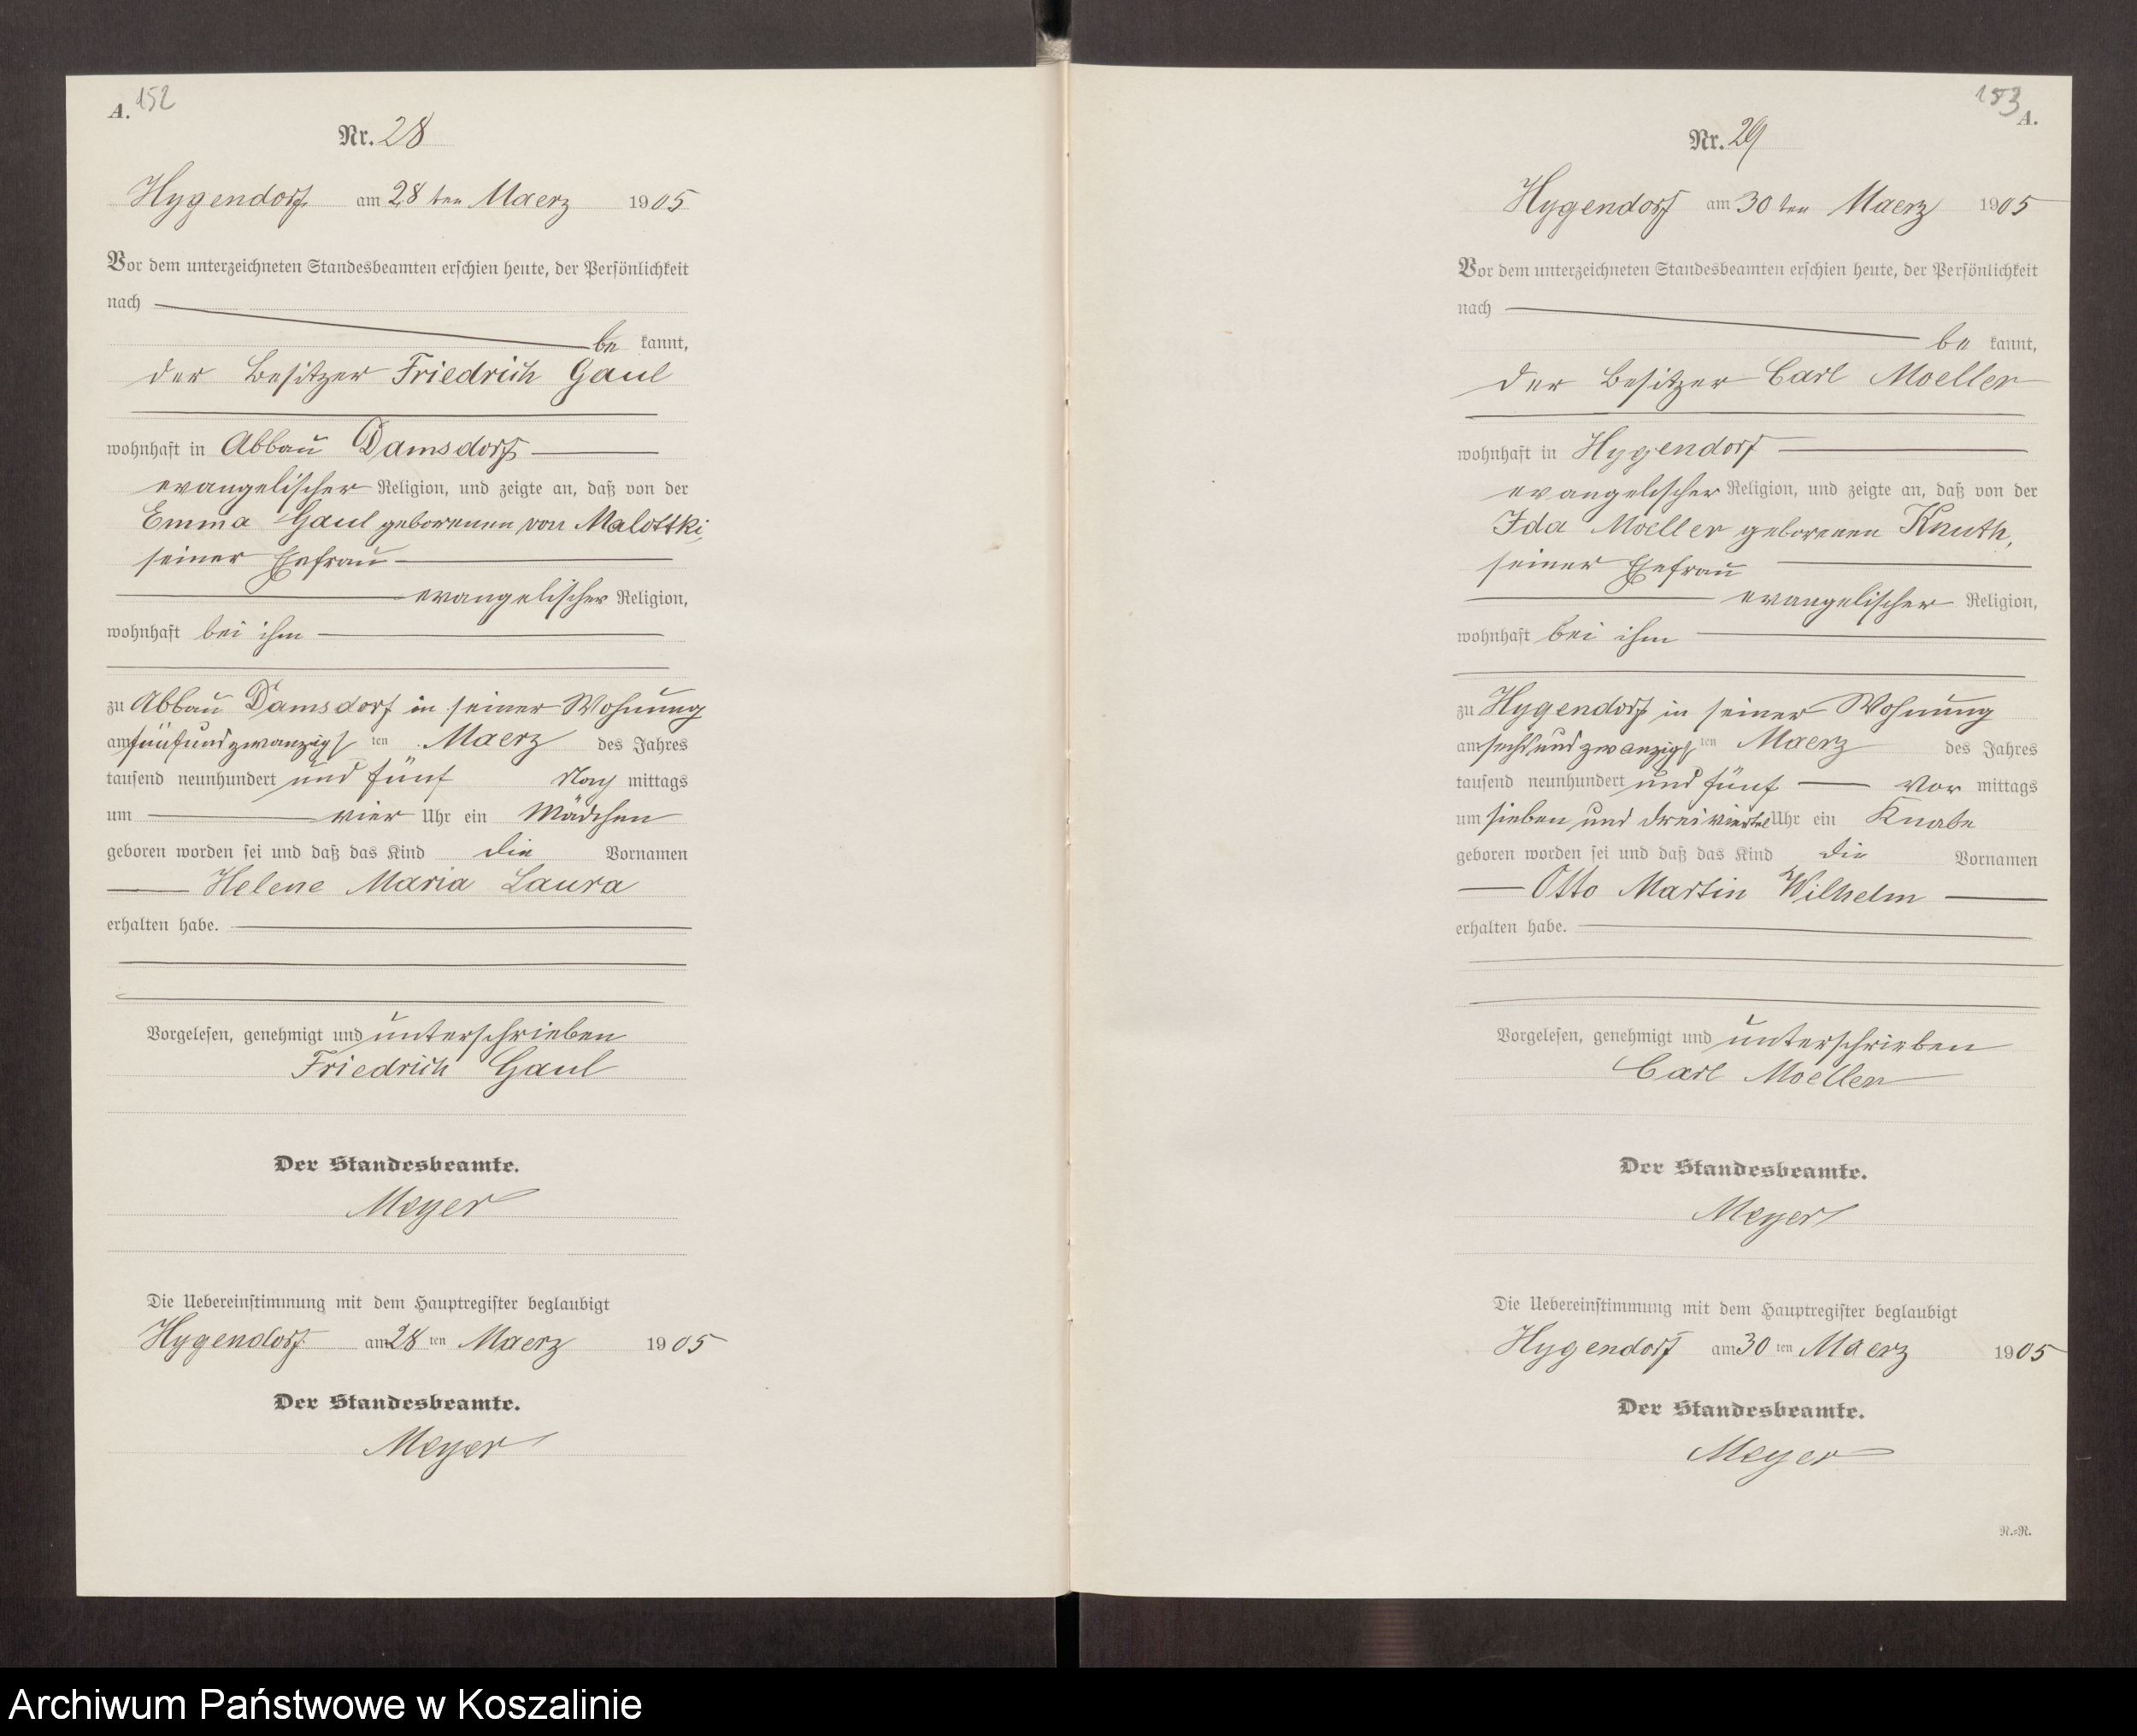 A. 152
Nr. 28
Hygendorf am 28 ten Maerz 1905
Vor dem unterzeichneten Standesbeamten erschien heute, der Persönlichkeit
nach
be kannt,
der Besitzer Friedrich Gaul
wohnhaft in Abbau Damsdorf
evangelischer Religion, und zeigte an, daß von der
Emma Gaul geborenen von Malottki,
seiner Ehefrau
evangelischer Religion,
wohnhaft bei ihm
zu Abbau Damsdorf in seiner Wohnung
am fünfundzwanzigs ten Maerz des Jahres
tausend neunhundert und fünf Nach mittags
um vier Uhr ein Mädchen
geboren worden sei und daß das Kind die Vornamen
Helene Maria Laura
erhalten habe.
Vorgelesen, genehmigt und unterschrieben
Friedrich Gaul
Der Standesbeamte.
Meyer
Die Uebereinstimmung mit dem Hauptregister beglaubigt
Hygendorf am 28 ten Maerz 1905
Der Standesbeamte.
Meyer
153 A.
Nr. 29
Hygendorf am 30 ten Maerz 1905
Vor dem unterzeichneten Standesbeamten erschien heute, der Persönlichkeit
nach
be kannt,
der Besitzer Carl Moeller
wohnhaft in Hygendorf
evangelischer Religion, und zeigte an, daß von der
Ida Moeller geborenen Knuth,
seiner Ehefrau
evangelischer Religion,
wohnhaft bei ihm
zu Hygendorf in seiner Wohnung
am sechsundzwanzigs ten Maerz des Jahres
tausend neunhundert und fünf Vor mittags
um sieben und dreiviertel Uhr ein Knabe
geboren worden sei und daß das Kind die Vornamen
Otto Martin Wilhelm
erhalten habe.
Vorgelesen, genehmigt und unterschrieben
Carl Moeller
Der Standesbeamte.
Meyer
Die Uebereinstimmung mit dem Hauptregister beglaubigt
Hygendorf am 30 ten Maerz 1905
Der Standesbeamte.
Meyer
R.=R.
Archiwum Państwowe w Koszalinie